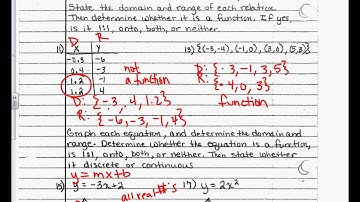 State the domain and range of each relation.
Then determine whether it is a function. If yes,
is it 1:1, onto, both, or neither.
D R
11) X Y
-0.3 -6
0.4 -3
1.2 -1
1.2 4
not
a function
D: {-.3, .4, 1.2}
R: {-6, -3, -1, 4}
13) {(-3,-4), (-1,0), (3,0), (5,3)}
D: {-3, -1, 3, 5}
R: {-4, 0, 3}
function
Graph each equation, and determine the domain and
range. Determine whether the equation is a function,
is 1:1, onto, both, or neither. Then state whether
it discrete or continuous
y = mx+b
15) y = -3x+2
all real #'s
17) y = 2x²